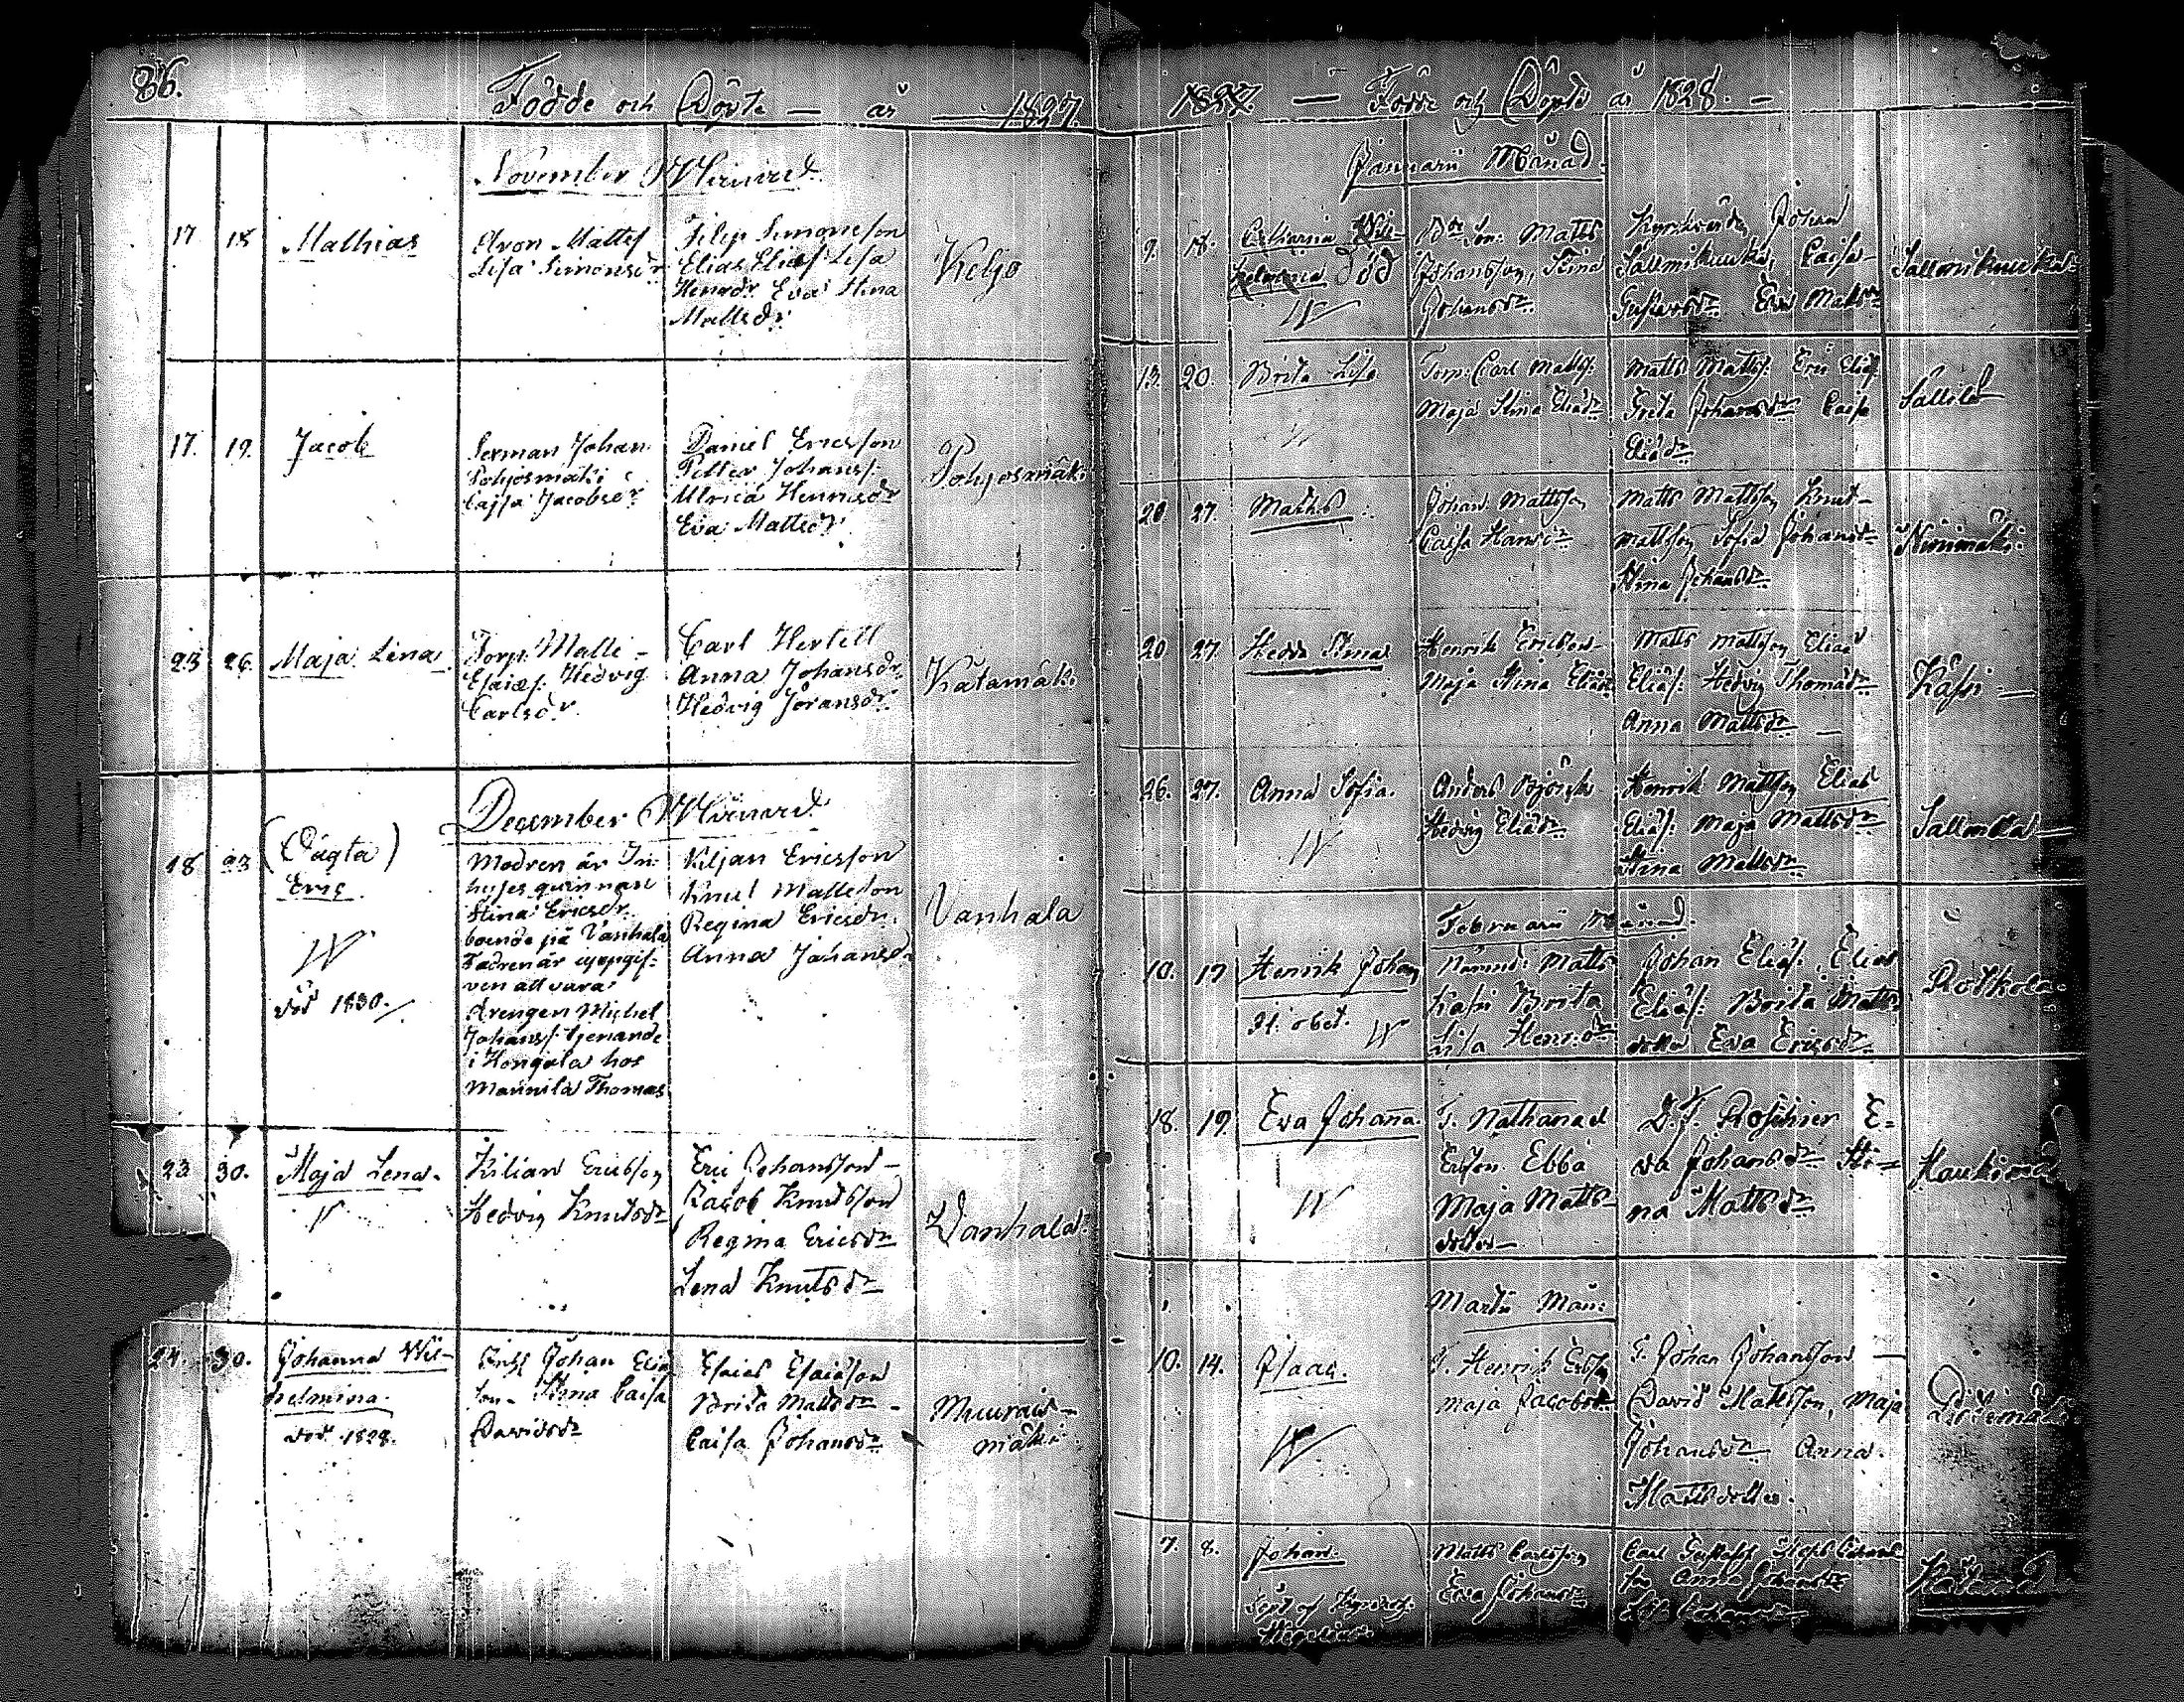 86.
Födde och Döpte — år — 1827.
November Månad.
17. 18 Mathias
Aron Mattss.
Lisa Simonsdr
Filip Simonsson
Elias Eliæs. Lisa
Henrdr Eva Stina
Mattsdr.
Keljo
17. 19. Jacob
Serman Johan
Pohjosmäki
Cajsa Jacobsdr
Daniel Ericsson
Petter Johanss.
Ulrica Henricsdr
Eva Mattsdr.
Pohjosmäki
23 26. Maja Lena.
Torp. Matts
Esaiæs. Hedvig
Carlsdr.
Carl Hertell
Anna Johansdr.
Hedvig Jöransdr.
Katamäki
December Månad.
18 23 (Oägta)
Eric.
död 1830.
Modren är In-
hyses qvinnan
Stina Ericsdr.
boende på Vanhala
Fadren är uppgif-
ven att vara
drengen Michel
Johanss. tjenande
i Hongola hos
Mannila Thomas
Kiljan Ericsson
Knut Mattsson
Regina Ericsdr.
Anna Johansdr
Vanhala
23 30. Maja Lena.
Kilian Ericsson
Hedvig Knutsdr
Eric Johansson
Jacob Knutsson
Regina Ericsdr
Lena Knutsdr
Vanhala
24. 30. Johanna Wil-
helmina.
död 1828.
Johan Elias
son. Stina Caisa
Davidsdr
Esaias Esaiasson
Brita Mattsdr
Caisa Johansdr
Muurais-
mäki
1827. — Födde och Döpte år 1828. —
Januarii Månad.
9. 18. Catharina Wil-
helmina Död
Bde Son: Matts
Johansson, Stina
Johansdr.
Kyrkvärden Johan
Sallmikuukka, Caisa
Gustavsdr Eva Mattsdr
Sallmikuukka
13. 20. Brita Lisa
Torp: Carl Mattss:
Maja Stina Eliædr
Matts Mattss: Eric Eliæs.
Greta Johansdr Caisa
Eliædr
Sallila
20 27. Matts
Johan Mattsson
Caisa Hansdr
Matts Mattsson Knut
Mattsson Sofia Johansdr
Stina Johansdr.
Niinimäki.
20 27. Hedda Stina
Henrik Ericsson
Maja Stina Eliædr
Matts Mattsson Elias
Eliæs. Hedvig Thomædr
Anna Mattsdr
Kassi
26. 27. Anna Sofia.
Anders Björck
Hedvig Eliædr.
Henrik Mattsson Elias
Eliæs. Maja Mattsdr
Stina Mattsdr
Februarii Månad.
10. 17 Henrik Johan
Nämnd: Matts
Kassi Brita
Lisa Henrsdr
Johan Eliæs. Elias
Eliæs. Brita Matts
dotter Eva Ericsdr.
Rötkola
18. 19. Eva Johanna.
T. Nathanael
Ersson Ebba
Maja Matts-
dotter
E-
va Johansdr Sti-
na Mattsdr
Martii Mån:
10. 14. Isaac.
T. Henrik Ersson
Maja Jacobsdr
T. Johan Johansson
David Mattsson, Maja
Johansdr Anna
Mattsdotter.
7. 8. Johan.
Matts Carlsson
Eva Johansdr
Carl Gustafss
Anna Johansdr